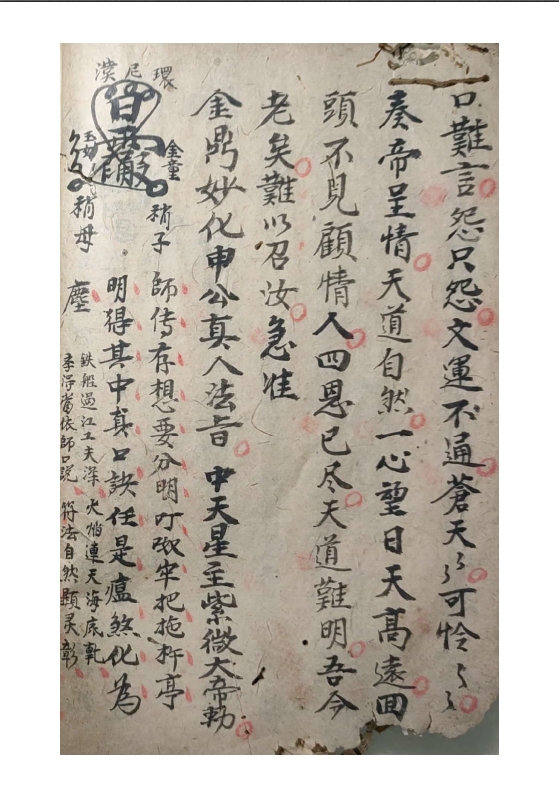 口難言怨只怨文運不通蒼天〻可怜〻〻
奏帝呈情天道自然一心望日天高遠回
頭不見顧情人四恩已尽天道難明吾今
老矣難以召汝急准
金鼎妙化申公真人法旨 中天星主紫微大帝勑
師傳存想要分明叮㕸牢把拖抃亭
明得其中真口訣任是瘟煞化為
塵
鉄船過江工夫深 火焰連天海底乹
季浮當依師口説 符法自然顕灵彰
環
尼
濮
金童
稍子
稍母